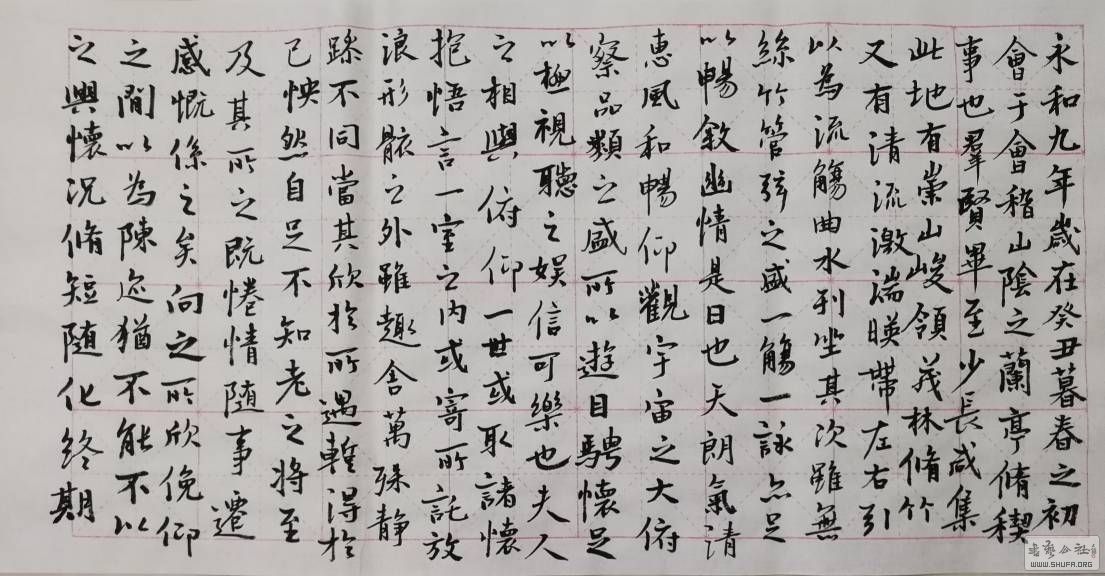 永和九年歲在癸丑暮春之初
會于會稽山陰之蘭亭脩稧
事也羣賢畢至少長咸集
此地有崇山峻領茂林脩竹
又有清流激湍暎帶左右引
以為流觴曲水列坐其次雖無
絲竹管弦之盛一觴一詠亦足
以暢敘幽情是日也天朗氣清
惠風和暢仰觀宇宙之大俯
察品類之盛所以遊目騁懷足
以極視聽之娛信可樂也夫人
之相與俯仰一世或取諸懷
抱悟言一室之內或寄所託放
浪形骸之外雖趣舍萬殊靜
躁不同當其欣於所遇蹔得於
己怏然自足不知老之將至
及其所之既惓情隨事遷
感慨係之矣向之所欣俛仰
之間以為陳迹猶不能不以
之興懷況脩短隨化終期
書藝公社
WWW.SHUFA.ORG